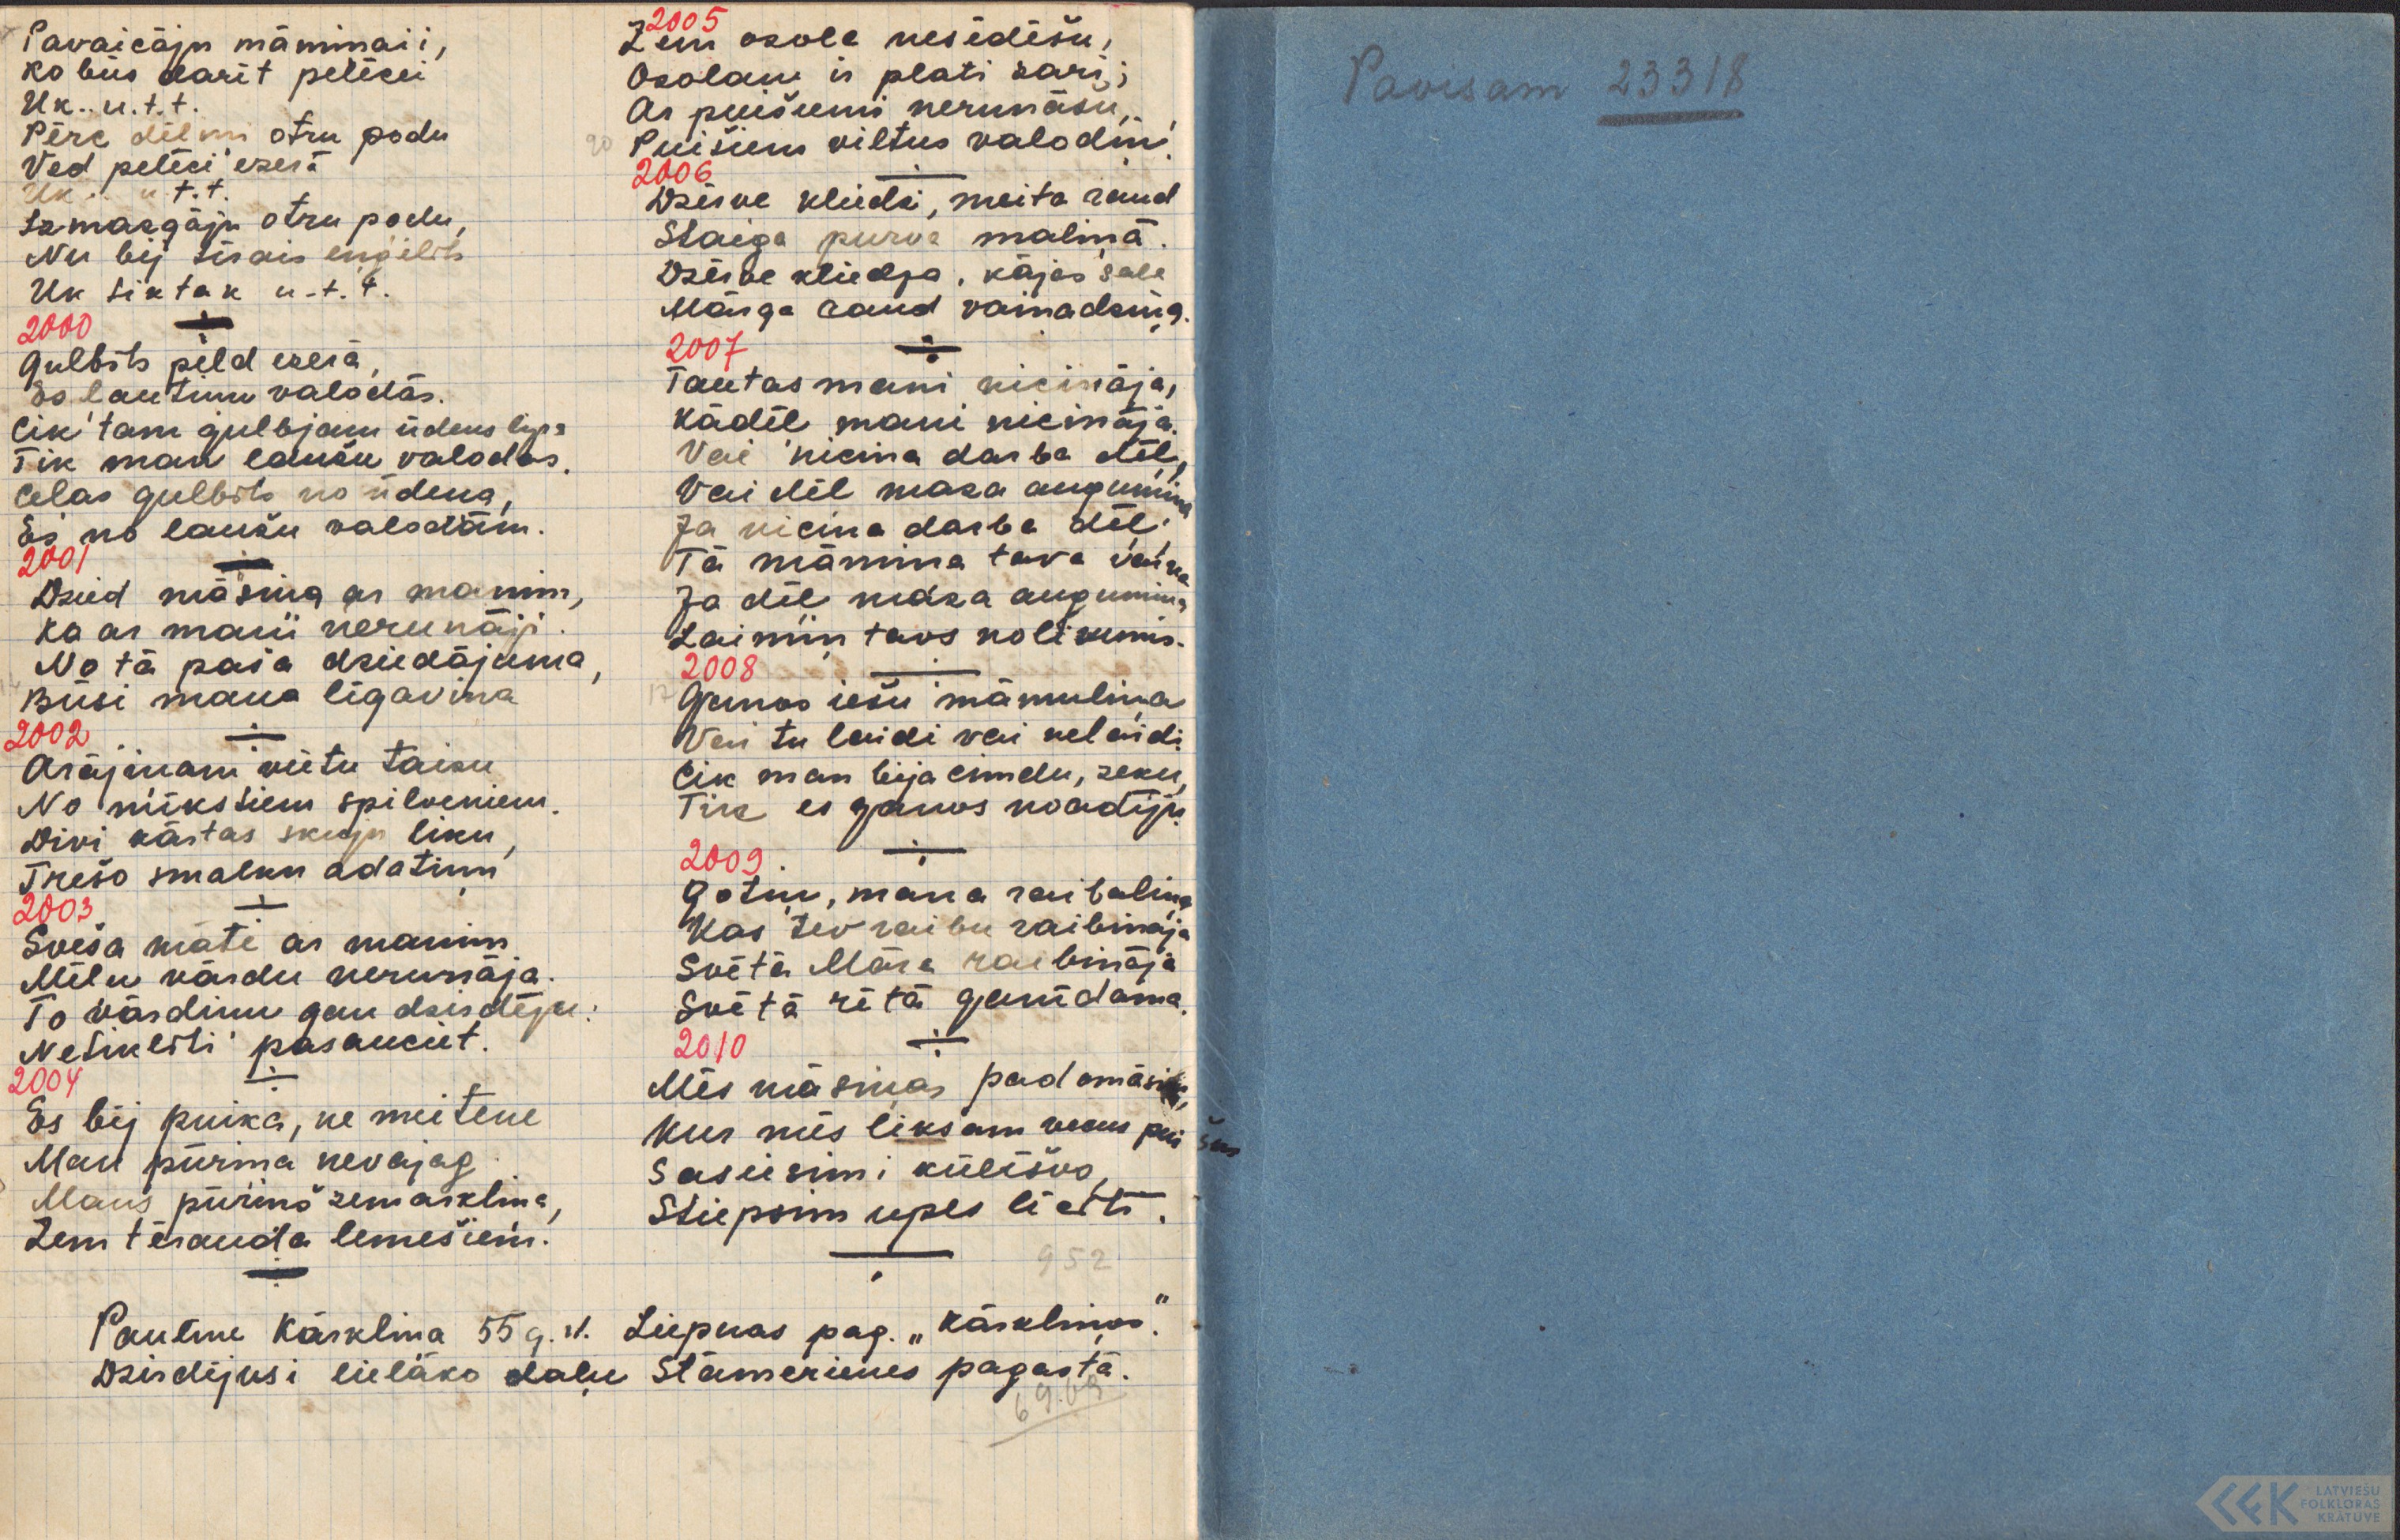 Pavaicāju māmiņai,
Ko būs darīt pelēcei
Uk.. u.t.t.
Pērc dēliņ otru podu
Ved pelēci ezerā
Uk.. u.t.t.
Izmazgāju otru podu,
Nu bij tīrais eņģelīts
Uk tik tak u.t.t.
2000
Gulbīts peld ezerā,
Es ļautiņu valodās.
Cik tam gulbjam ūdens lipa
Tik man ļaužu valodas.
Ceļas gulbīts no ūdeņa,
Es no ļaužu valodām.
2001
Dzied māsiņa ar manim,
Ka ar mani nerunāji.
No tā paša dziedājuma,
Būsi mana līgaviņa
2002
Arājiņam vietu taisu
No mīkstiem spilveniem.
Divi kārtas skuju liku,
Trešo smalku adatiņu
2003
Sveša māte ar manim
Mīļu vārdu nerunāja.
To vārdiņu gan dzirdēju:
Netiklīti pasauciet.
2004
Es bij puika, ne meitene
Man pūriņa nevajag.
Mans pūriņš zem arkliņa,
Zem tērauda lemešiem.
2005
Zem ozola nesēdēšu,
Ozolam ir plati zari;
Ar puišiemi nerunāšu,
90 Puišiem viltus valodiņ.
2006
Dzērve kliedz, meita raud
Staiga purva maliņā.
Dzērve kliedza, kājas sala
Mārga raud vainadziņa.
2007
Tautas mani nicināja,
Kādēļ mani nicināja.
Vai nicina darba dēļ,
Vai dēļ maza augumiņa
Ja nicina darba dēļ,
Tā māmiņa tava vaina
Ja dēļ maza augumiņa
Laimiņ tavs nolikums.
2008
Ganos iešu māmuliņa
Vai tu laidi vai nelaidi
Cik man bija cimdu, zeķu,
Tik es ganos noadīju.
2009.
Gotiņ, mana raibaliņa
Kas tev raibu raibināja
Svētā Māra raibināja
Svētā rītā ganīdama.
2010
Mēs māsiņas padomāsim,
Kur mēs liksam vecus puišus
Sasiesimi kūlīšos,
Stiepsim upes līcītī.
952
Pauline Kārkliņa 55 g. v. Liepnas pag. „Kārkliņos".
Dzirdējusi lielāko daļu Stāmerienes pagastā.
Pavisam 23318
LATVIEŠU
FOLKLORAS
KRĀTUVE